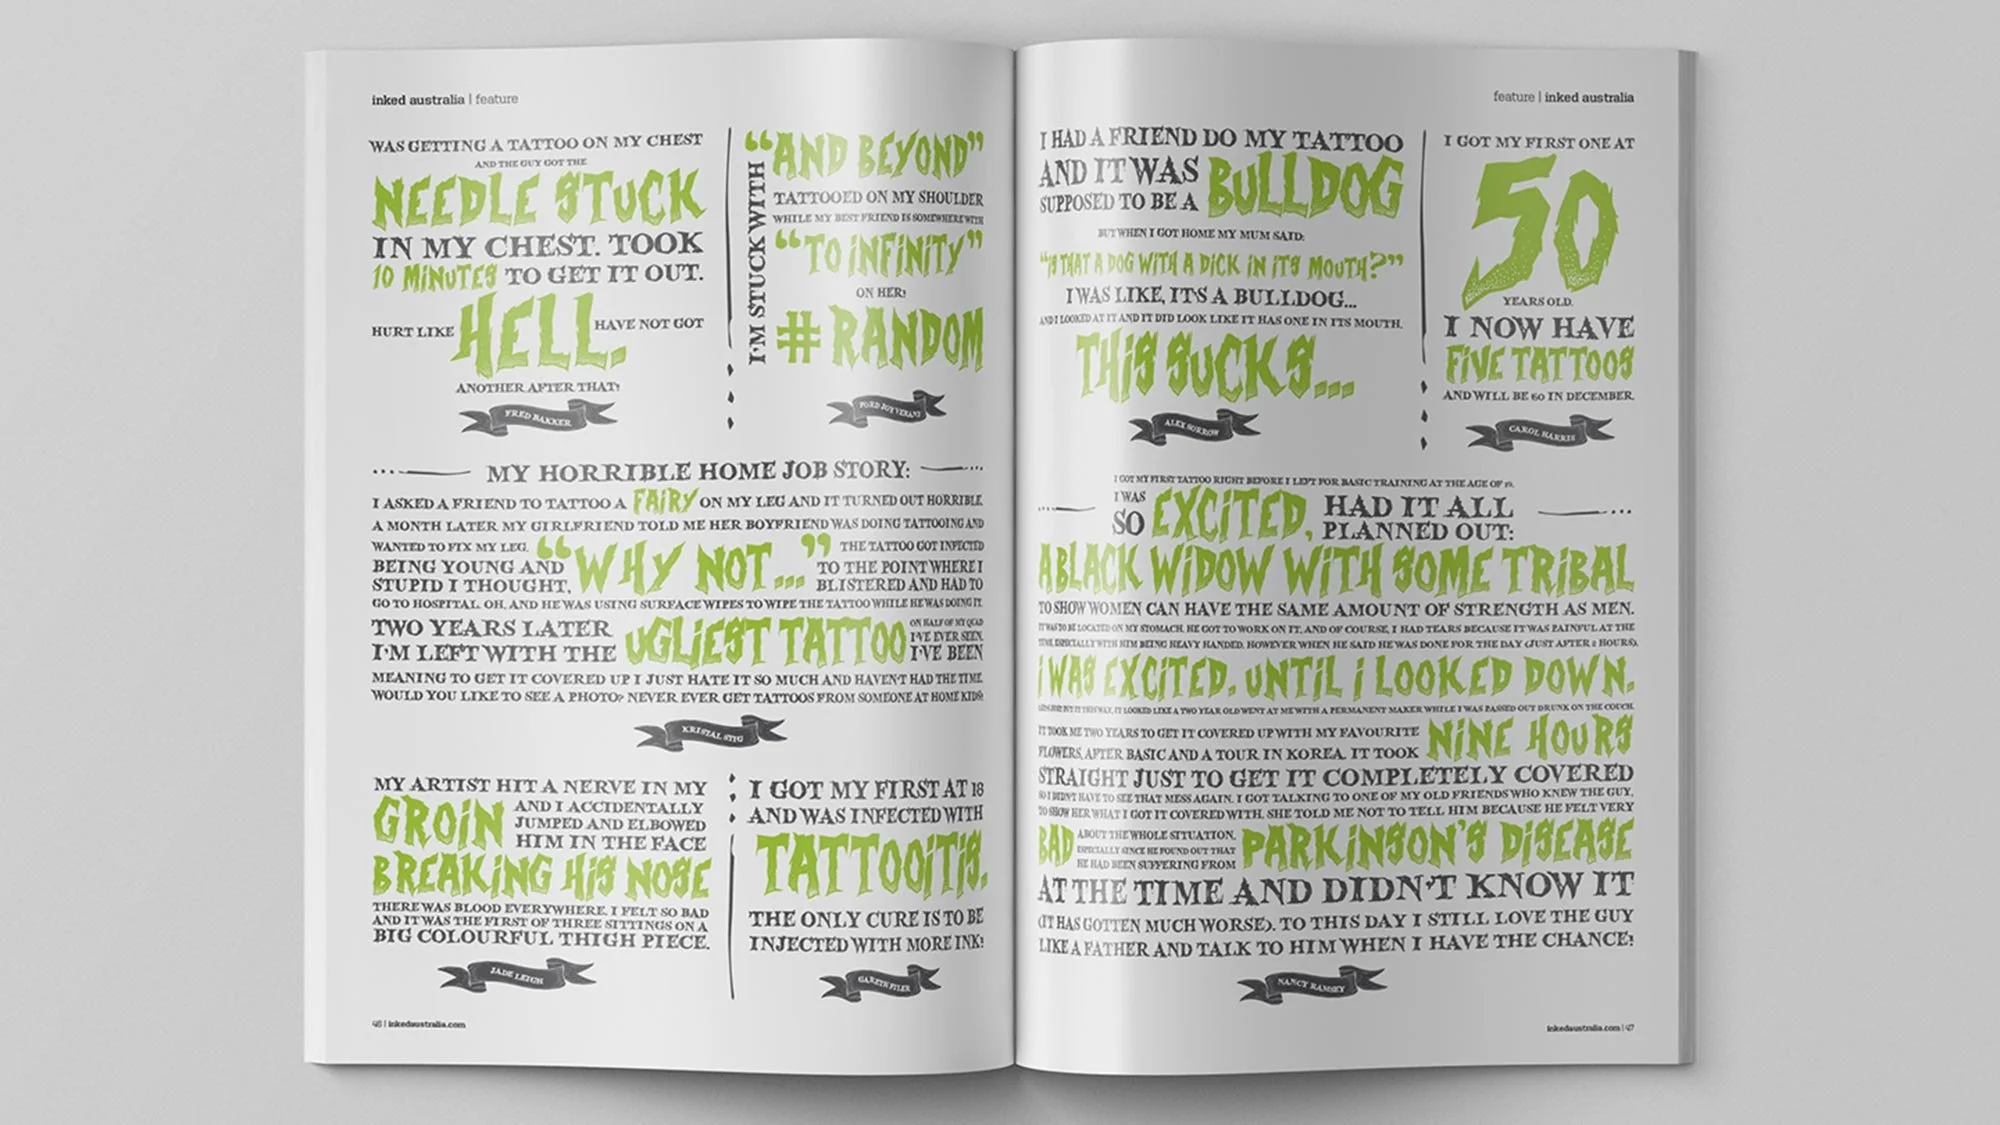 inked australia | feature
WAS GETTING A TATTOO ON MY CHEST
AND THE GUY GOT THE
NEEDLE STUCK
IN MY CHEST. TOOK
10 MINUTES TO GET IT OUT.
HURT LIKE HELL. HAVE NOT GOT
ANOTHER AFTER THAT!
FRED BAKKER
I'M STUCK WITH
“AND BEYOND”
TATTOOED ON MY SHOULDER
WHILE MY BEST FRIEND IS SOMEWHERE WITH
“TO INFINITY”
ON HER!
# RANDOM
FORD
MY HORRIBLE HOME JOB STORY:
I ASKED A FRIEND TO TATTOO A FAIRY ON MY LEG AND IT TURNED OUT HORRIBLE.
A MONTH LATER MY GIRLFRIEND TOLD ME HER BOYFRIEND WAS DOING TATTOOING AND
WANTED TO FIX MY LEG.
BEING YOUNG AND
STUPID I THOUGHT,
“WHY NOT...”
THE TATTOO GOT INFECTED
TO THE POINT WHERE I
BLISTERED AND HAD TO
GO TO HOSPITAL. OH, AND HE WAS USING SURFACE WIPES TO WIPE THE TATTOO WHILE HE WAS DOING IT.
TWO YEARS LATER
I'M LEFT WITH THE
UGLIEST TATTOO
ON HALF OF MY QUAD
I'VE EVER SEEN.
I'VE BEEN
MEANING TO GET IT COVERED UP I JUST HATE IT SO MUCH AND HAVEN'T HAD THE TIME.
WOULD YOU LIKE TO SEE A PHOTO? NEVER EVER GET TATTOOS FROM SOMEONE AT HOME KIDS!
KRISTAL STYG
MY ARTIST HIT A NERVE IN MY
GROIN
AND I ACCIDENTALLY
JUMPED AND ELBOWED
HIM IN THE FACE
BREAKING HIS NOSE
THERE WAS BLOOD EVERYWHERE. I FELT SO BAD
AND IT WAS THE FIRST OF THREE SITTINGS ON A
BIG COLOURFUL THIGH PIECE.
JADE LEIGH
I GOT MY FIRST AT 18
AND WAS INFECTED WITH
TATTOOITIS.
THE ONLY CURE IS TO BE
INJECTED WITH MORE INK!
GARETH FILER
46 | inkedaustralia.com
feature | inked australia
I HAD A FRIEND DO MY TATTOO
AND IT WAS
SUPPOSED TO BE A
BULLDOG
BUT WHEN I GOT HOME MY MUM SAID:
“IS THAT A DOG WITH A DICK IN ITS MOUTH?”
I WAS LIKE, IT'S A BULLDOG...
AND I LOOKED AT IT AND IT DID LOOK LIKE IT HAS ONE IN ITS MOUTH.
THIS SUCKS...
ALEX SORROW
I GOT MY FIRST ONE AT
50
YEARS OLD.
I NOW HAVE
FIVE TATTOOS
AND WILL BE 60 IN DECEMBER.
CAROL HARRIS
I GOT MY FIRST TATTOO RIGHT BEFORE I LEFT FOR BASIC TRAINING AT THE AGE OF 19.
I WAS
SO
EXCITED,
HAD IT ALL
PLANNED OUT:
A BLACK WIDOW WITH SOME TRIBAL
TO SHOW WOMEN CAN HAVE THE SAME AMOUNT OF STRENGTH AS MEN.
IT WAS TO BE LOCATED ON MY STOMACH. HE GOT TO WORK ON IT, AND OF COURSE, I HAD TEARS BECAUSE IT WAS PAINFUL AT THE
TIME, ESPECIALLY WITH HIM BEING HEAVY HANDED. HOWEVER WHEN HE SAID HE WAS DONE FOR THE DAY (JUST AFTER 2 HOURS),
I WAS EXCITED. UNTIL I LOOKED DOWN.
LET'S JUST PUT IT THIS WAY, IT LOOKED LIKE A TWO YEAR OLD WENT AT ME WITH A PERMANENT MAKER WHILE I WAS PASSED OUT DRUNK ON THE COUCH.
IT TOOK ME TWO YEARS TO GET IT COVERED UP WITH MY FAVOURITE
FLOWERS, AFTER BASIC AND A TOUR IN KOREA. IT TOOK
NINE HOURS
STRAIGHT JUST TO GET IT COMPLETELY COVERED
SO I DIDN'T HAVE TO SEE THAT MESS AGAIN. I GOT TALKING TO ONE OF MY OLD FRIENDS WHO KNEW THE GUY,
TO SHOW HER WHAT I GOT IT COVERED WITH. SHE TOLD ME NOT TO TELL HIM BECAUSE HE FELT VERY
BAD
ABOUT THE WHOLE SITUATION,
ESPECIALLY SINCE HE FOUND OUT THAT
HE HAD BEEN SUFFERING FROM
PARKINSON'S DISEASE
AT THE TIME AND DIDN'T KNOW IT
(IT HAS GOTTEN MUCH WORSE). TO THIS DAY I STILL LOVE THE GUY
LIKE A FATHER AND TALK TO HIM WHEN I HAVE THE CHANCE!
NANCY RAMSEY
inkedaustralia.com | 47